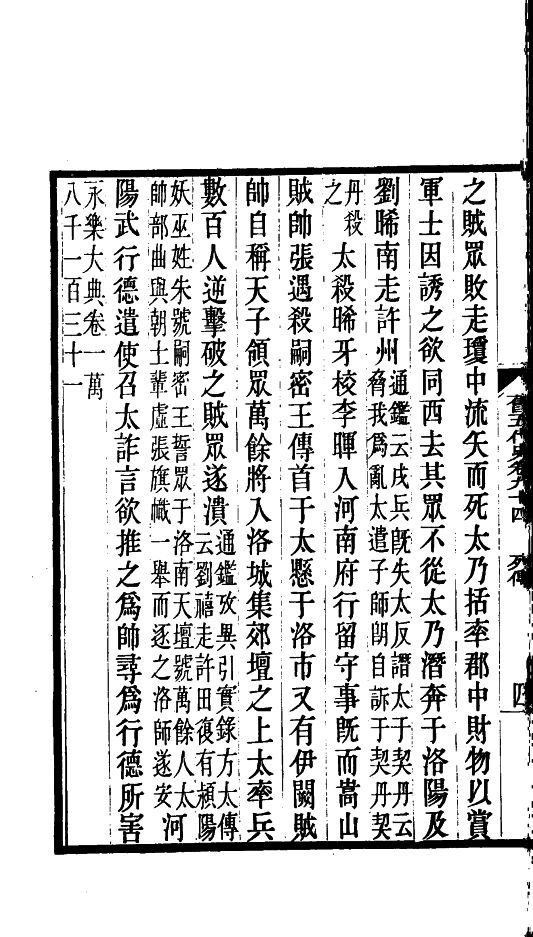 之賊眾敗走瓊中流矢而死太乃括率郡中財物以賞
軍士因誘之欲同西去其眾不從太乃潛奔于洛陽及
劉晞南走許州通鑑云戍兵既失太反譖太于契丹云
脅我為亂太遣子師朗自訴于契丹契
丹殺
之太殺晞牙校李暉入河南府行留守事既而嵩山
賊帥張遇殺嗣密王傳首于太懸于洛市又有伊闕賊
帥自稱天子領眾萬餘將入洛城集郊壇之上太率兵
數百人逆擊破之賊眾遂潰通鑑攷異引實錄方太傳
云劉禧走許田復有潁陽
妖巫姓朱號嗣密王誓眾于洛南天壇號萬餘人太
帥部曲與朝士輩虛張旗幟一舉而逐之洛師遂安
河
陽武行德遣使召太詐言欲推之為帥尋為行德所害
永樂大典卷一萬
八千一百三十一
舊五代史卷九十四 列傳 四